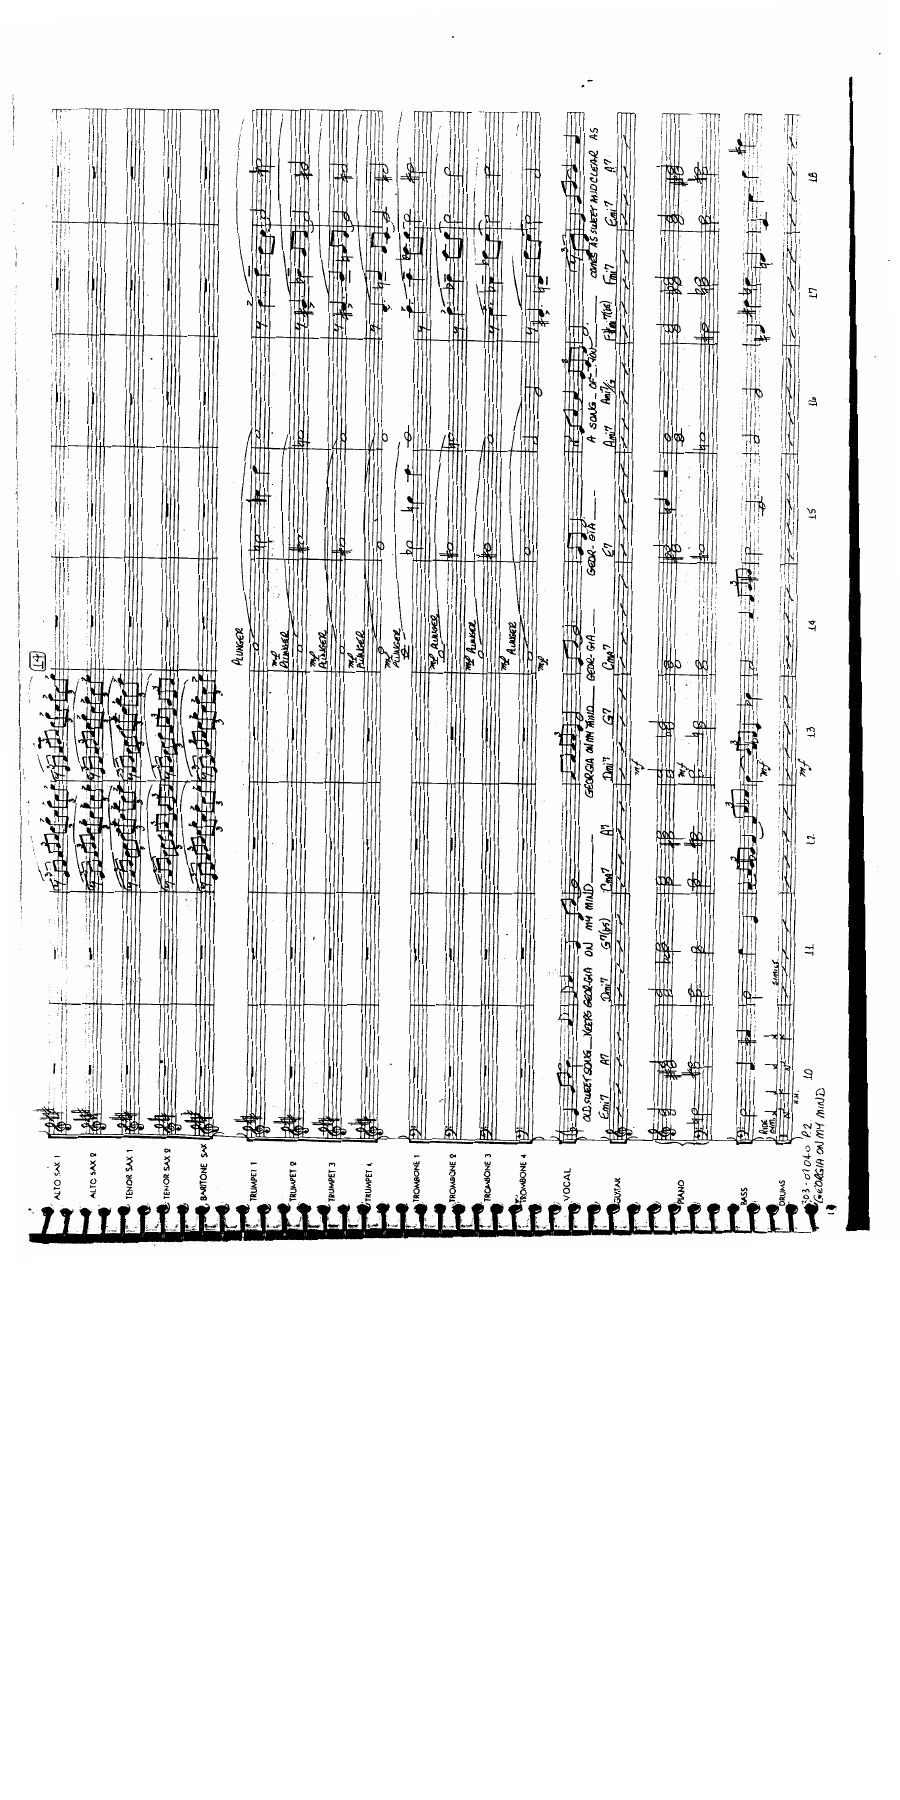 14
ALTO SAX 1
ALTO SAX 2
TENOR SAX 1
TENOR SAX 2
BARITONE SAX
TRUMPET 1 PLUNGER mp
TRUMPET 2 PLUNGER mp
TRUMPET 3 PLUNGER mp
TRUMPET 4 PLUNGER mp
TROMBONE 1 PLUNGER mp
TROMBONE 2 PLUNGER mp
TROMBONE 3 PLUNGER mp
TROMBONE 4 mp
VOCAL
OLD SWEET SONG KEEPS GEORGIA ON MY MIND GEORGIA ON MY MIND GEOR-GIA GEOR-GIA A SONG OF YOU COMES AS SWEET AND CLEAR AS
Emi7 A7 Dmi7 G7(b5) Cma7 A7 Dmi7 G7 Cma7 E7 Ami7 Ami7/G Fmi7 Emi7 A7
GUITAR mf
PIANO mf
BASS mf
RIDE
SIMILE
DRUMS mf
H.H.
10 11 12 13 14 15 16 17 18
03-01040 P.2
GEORGIA ON MY MIND